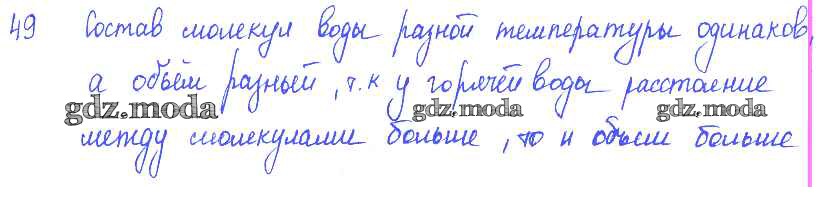 49 Состав молекул воды разной температуры одинаков,
а объём разный, т.к у горячей воды расстояние
gdz.moda gdz.moda gdz.moda
между молекулами больше, то и объём больше